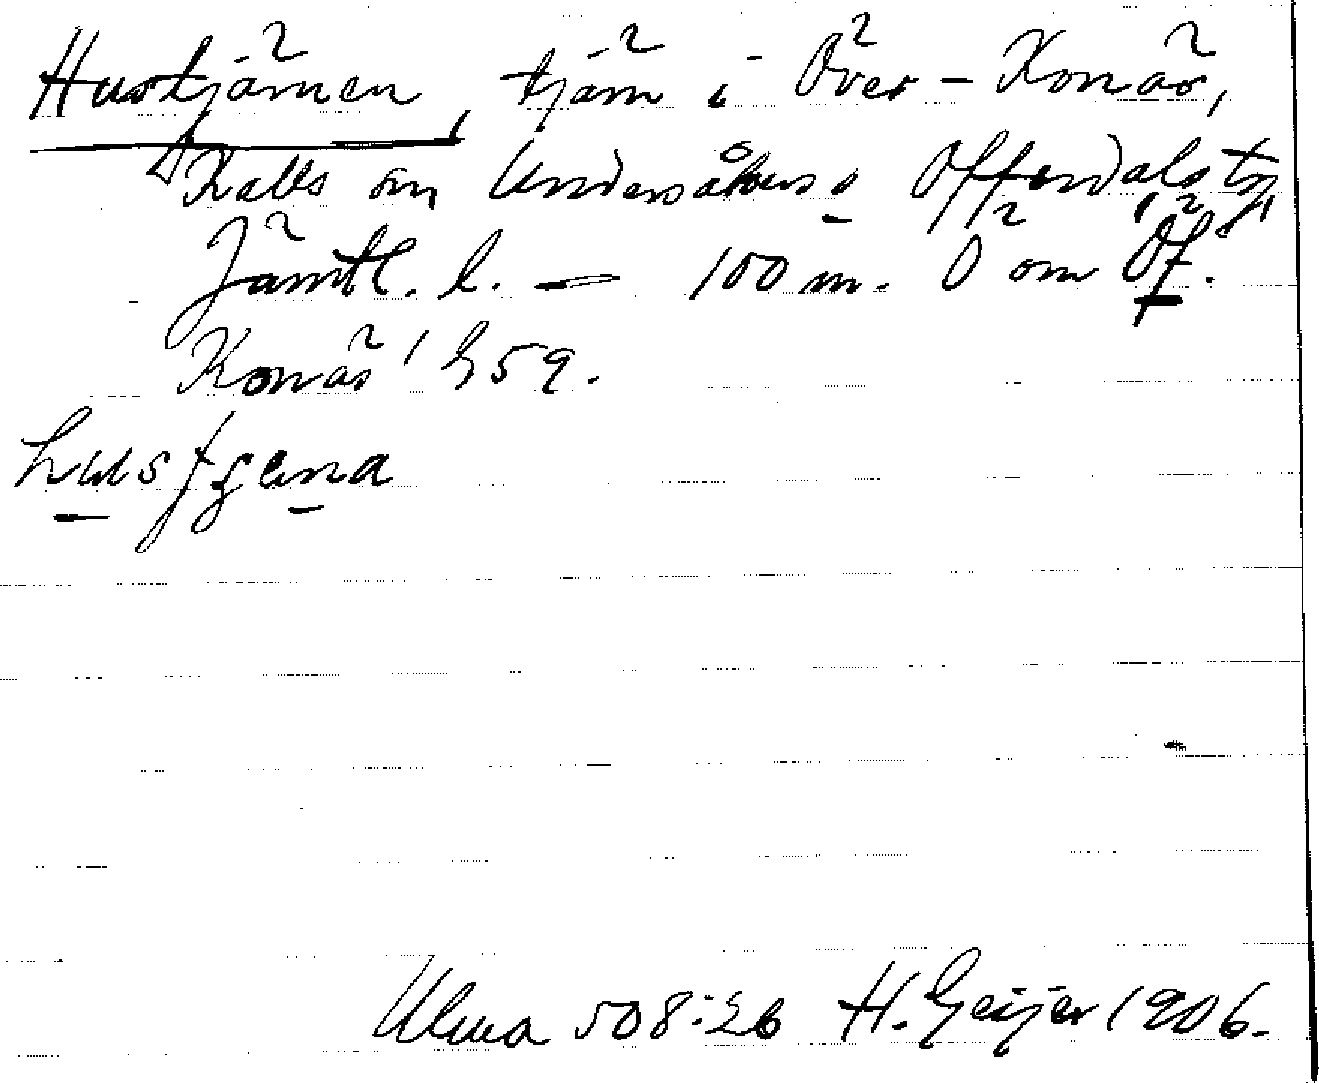 Hustjärnen, tjärn i Över-Konäs,
Kalls sn Undersåkers o Offerdals tg
Jämtl. l. – 100 m. Ö om Öf.
Konäs' b 59.
husʃʒena
Ulma 508:26 H. Geijer 1906.